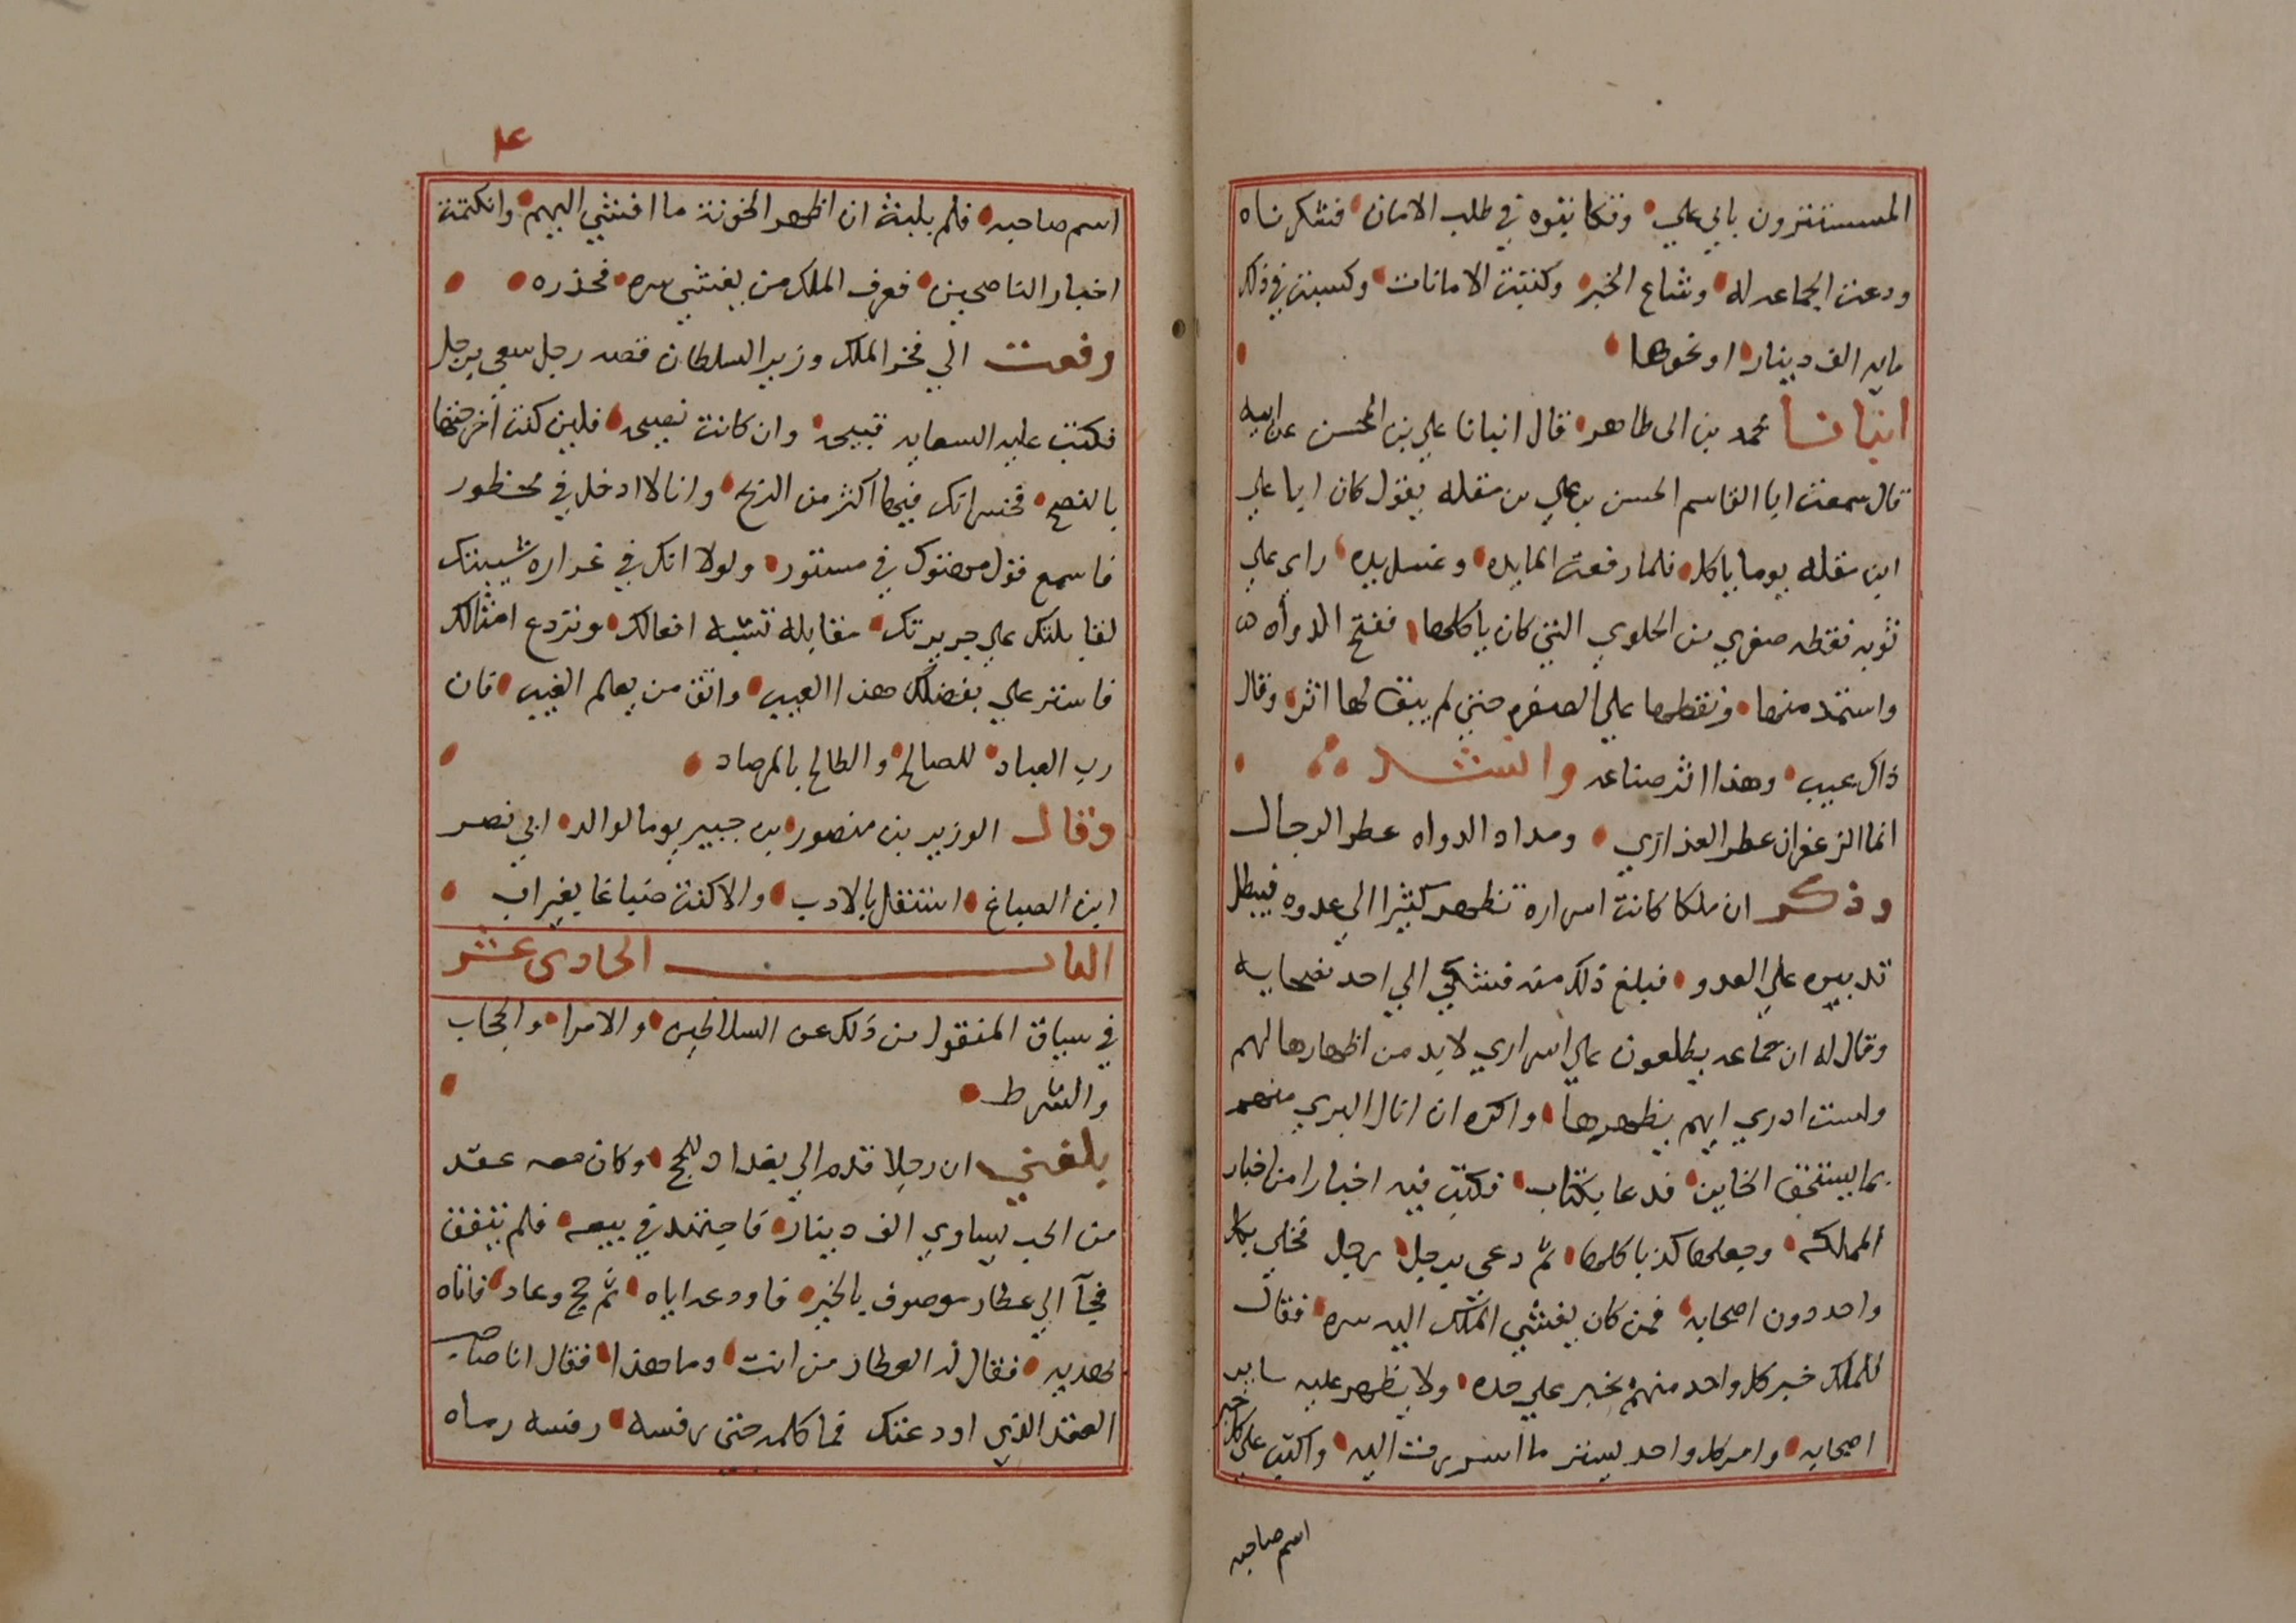 المستترون بابي علي وتكاتبوه في طلب الامان فتشكرناه
ودعت الجماعه له وشاع الخبر وكتبت الامانات وكسبت في ذلك
مايه الف دينار او نحوها
انبانا محمد بن ابي طاهر قال انبانا علي بن المحسن عن ابيه
قال سمعت ابا القاسم الحسن بن علي بن مقله يقول كان ابا علي
ابن مقله يوما ياكل فلما رفعت المايده وغسل يده راي علي
ثوبه نقطه صفري من الحلوي التي كان ياكلها ففتح الدواه
واستمد منها ونقطها علي الصفره حتي لم يبق لها اثر وقال
ذاك عيب وهذا اثر صناعه وانشد
انما الزعفران عطر العذاري ومداد الدواه عطر الرجال
وذكر ان ملكا كانت اسراره تظهر كثيرا الي عدوه فيبطل
تدبيره علي العدو فبلغ ذلك منه فتشكي الي احد نصحايه
وقال له ان جماعه يطلعون علي اسراري لابد من اظهارها لهم
ولست ادري ايهم يظهرها واكره ان انال البري منهم
بما يستحق الخاين فدعا بكتاب فكتب فيه اخبارا من اخبار
المملكه وجعلها كذبا كلها ثم دعي برجل رجل فخلي بكل
واحد دون اصحابه فمن كان يفشي الملك اليه سره فقال
للملك خبر كل واحد منهم بخبر علي حده ولا يظهر عليه ساير
اصحابه وامر كل واحد بستر ما اسررت اليه واكتب علي كل خبر
اسم صاحبه
عا
اسم صاحبه فلم يلبث ان اظهر الخونة ما افشي اليهم وانكتمت
اخبار الناصحين فعرف الملك من يفشي سره فحذره
رفعت الي فخر الملك وزير السلطان قصه رجل سعي برجل
فكتب عليه السعايه قبيحه وان كانت نصيحه فلين كنت اخرجتها
بالنصح فخسرانك فيها اكثر من الربح وانا لا ادخل في محظور
فاسمع قول مهتوك في مستور ولولا انك في غراره شيبتك
لقابلتك علي جريرتك مقابلة تشبه افعالك وتردع امثالك
فاستر علي بفضلك هذا العيب واتق من يعلم الغيب فان
رب العباد للصالح والطالح بالمرصاد
وقال الوزير بن منصور بن جبير يوما لوالد ابي نصر
ابن الصباغ اشتغل بالادب والا كنت صباغا بغير اب
الباب الحادي عشر
في سياق المنقول من ذلك عن السلاطين والامرا والحجاب
والشرط
بلغني ان رجلا قدم الي بغداد للحج وكان معه عقد
من الحب يساوي الف دينار فاجتهد في بيعه فلم يتفق
فجآ الي عطار موصوف بالخير فاودعه اياه ثم حج وعاد فاتاه
بهديه فقال له العطار من انت وما هذا فقال انا صاحب
العقد الذي اودعتك فما كلمه حتي رفسه رفسه رماه